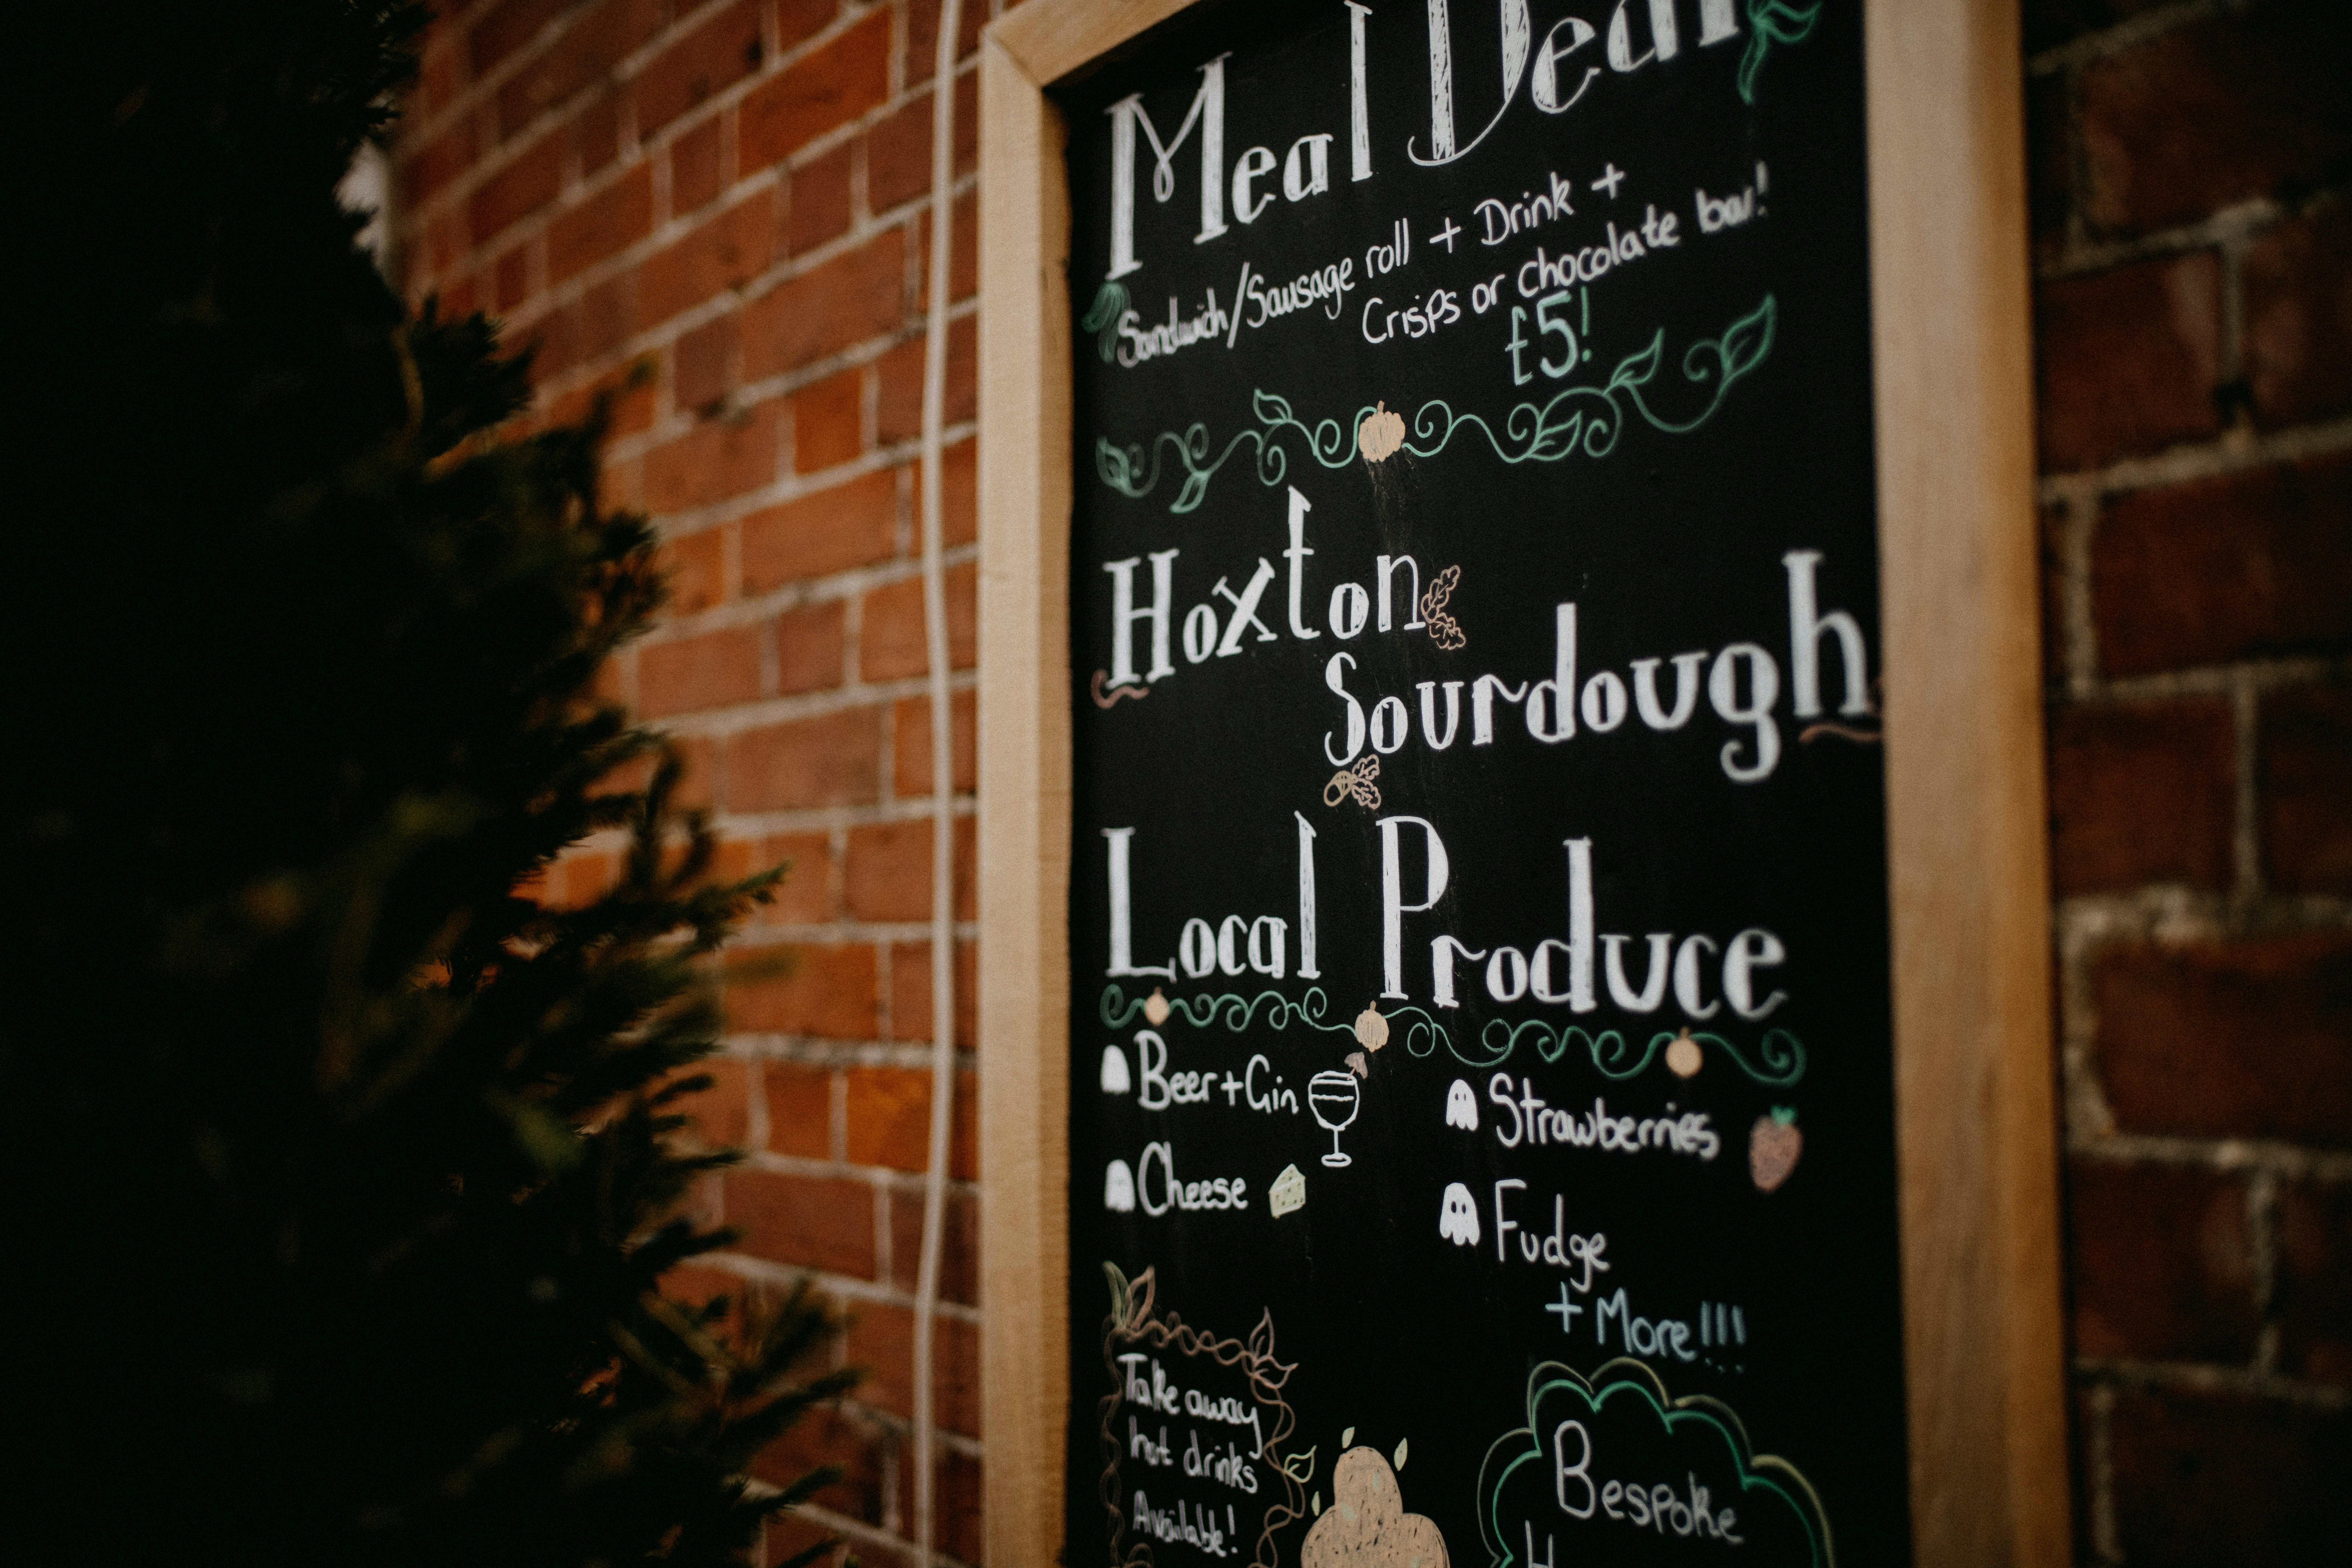 Meal Deal
Sandwich/Sausage roll + Drink +
Crisps or chocolate bar!
£5!
Hoxton
Sourdough
Local Produce
Beer + Gin
Cheese
Strawberries
Fudge
+ More!!!
Take away
hot drinks
Available!
Bespoke